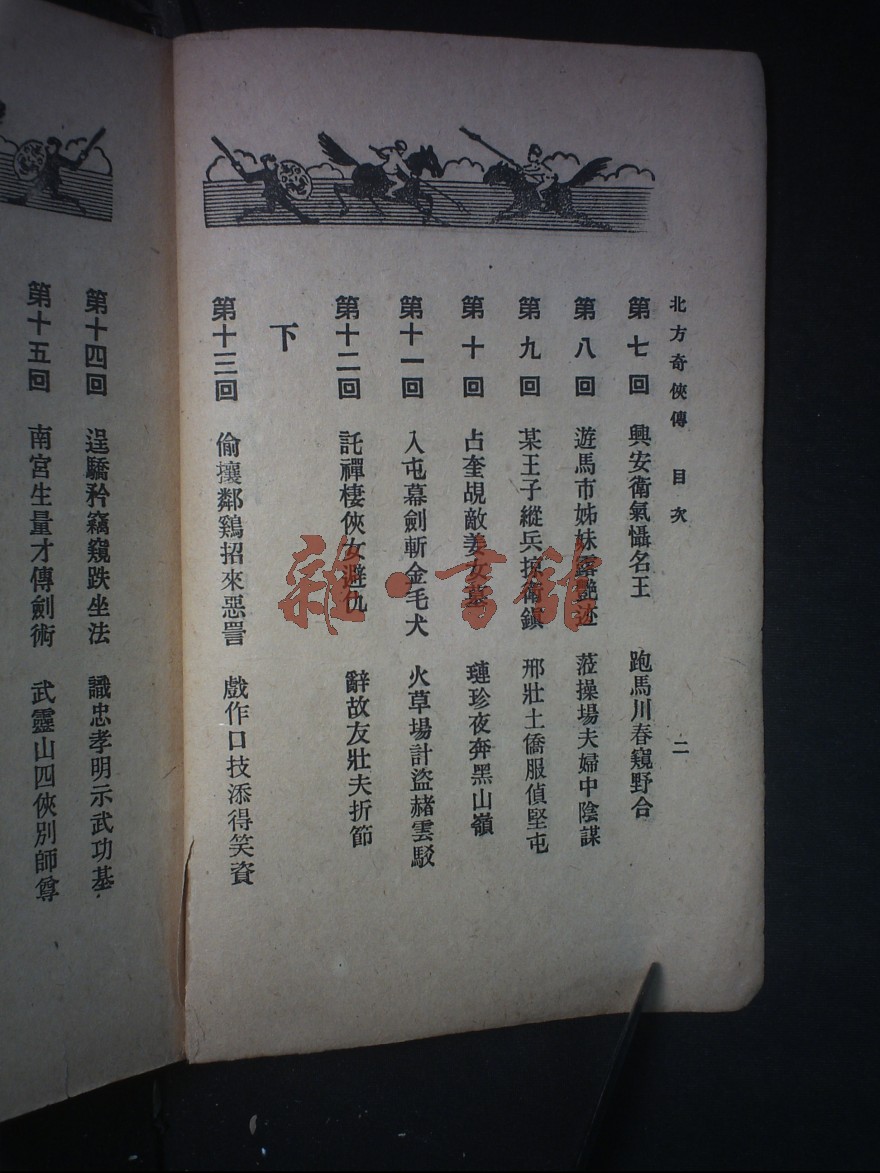 北方奇俠傳 目次 二
第七回 興安衛氣懾名王 跑馬川春窺野合
第八回 遊馬市姊妹露艷迹 蒞操場夫婦中陰謀
第九回 某王子縱兵掠衛鎮 邢壯士僑服偵堅屯
第十回 占奎覘敵姜女墓 璉珍夜奔黑山嶺
第十一回 入屯幕劍斬金毛犬 火草場計盜赭雲駁
第十二回 託禪棲俠女避仇 辭故友壯夫折節
下
第十三回 偷攘鄰鷄招來惡詈 戲作口技添得笑資
第十四回 逞驕矜竊窺跌坐法 識忠孝明示武功基
第十五回 南宮生量才傳劍術 武靈山四俠別師尊
雜·書館